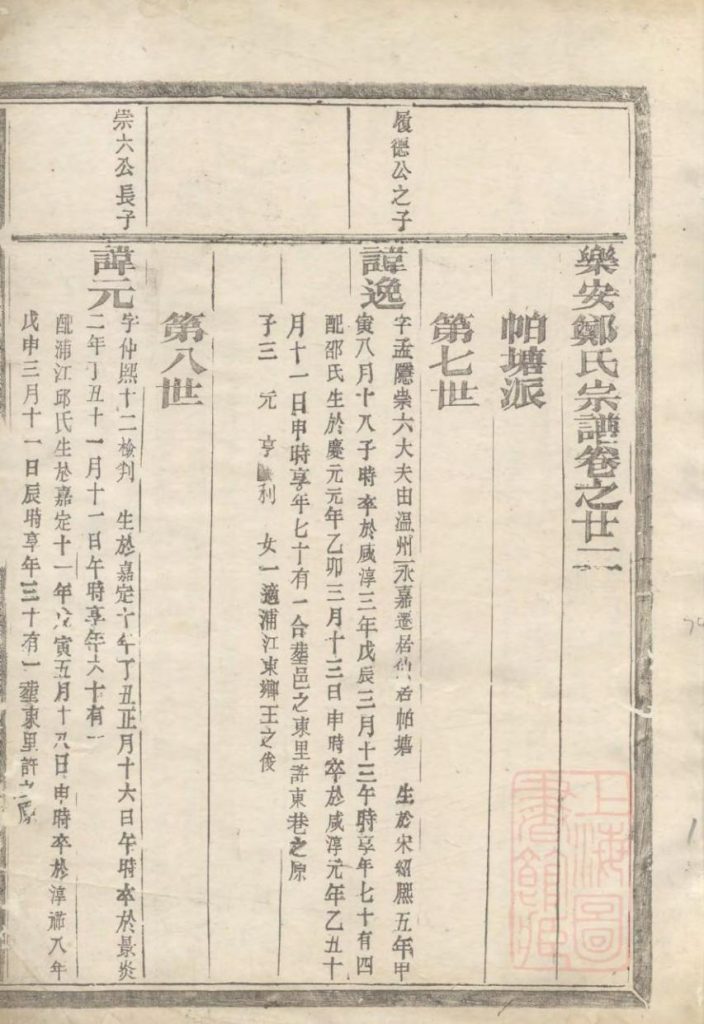 樂安鄭氏宗譜卷之廿二
帕塘派
第七世
履德公之子
諱逸
字孟隱崇六大夫由温州永嘉遷居仙居帕塘 生於宋紹熙五年甲
寅八月十八子時卒於咸淳三年戊辰三月十三午時享年七十有四
配邵氏生於慶元元年乙卯三月十三日申時卒於咸淳元年乙丑十
月十一日申時享年七十有一合塟邑之東里許東巷之原
子三 元 亨 利 女一適浦江東鄉王之俊
第八世
崇六公長子
諱元
字仲熙十二檢判 生於嘉定十年丁丑正月十六日午時卒於景炎
二年丁丑十一月十一日午時享年六十有一
配浦江邱氏生於嘉定十一年戊寅五月十九日申時卒於淳祐八年
戊申三月十一日辰時享年三十有一塟東里許之原
上海圖書館藏